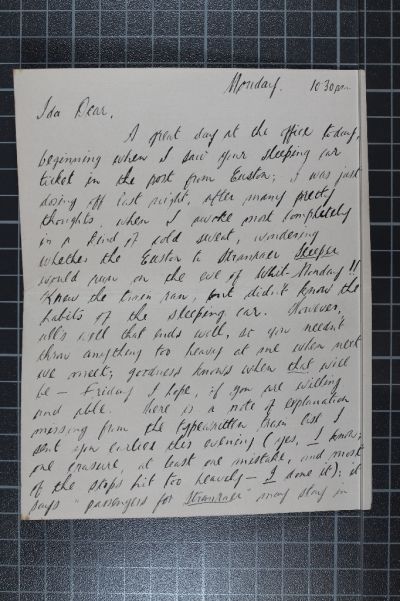 Monday. 10 30pm
Ida Dear,
A great day at the office today,
beginning when I saw your sleeping car
ticket in the post from Euston; I was just
dozing off last night, after many pretty
thoughts, when I awoke most completely
in a kind of cold sweat, wondering
whether the Euston to Stranraer Sleeper
would run on the eve of Whit-Monday!! I
knew the train ran, but didn't know the
habits of the sleeping car. However,
all's well that ends well, so you needn't
throw anything too heavy at me when next
we meet; goodness knows when that will
be – Friday I hope, if you are willing
and able. There is a note of explanation
missing from the typewritten train list I
sent you earlier this evening (yes, I know;
one erasure, at least one mistake, and most
of the stops hit too heavily – I done it): it
says "passengers for Stranraer may stay in